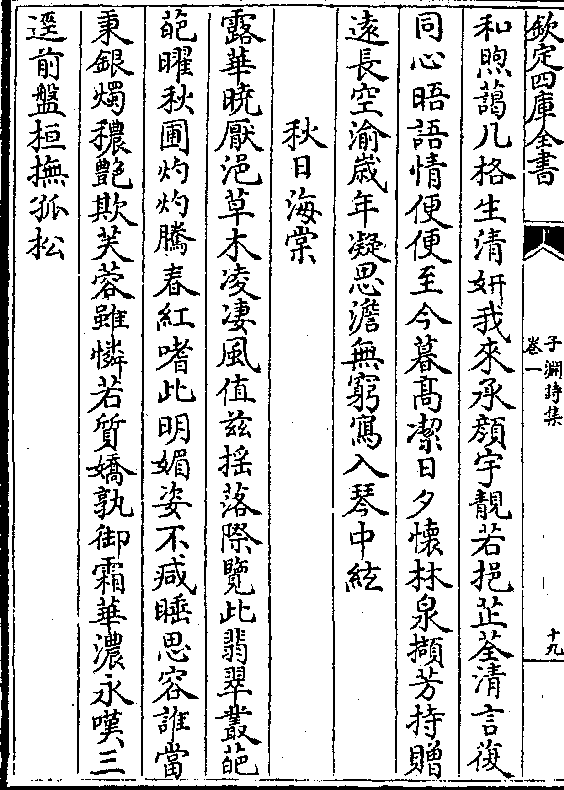 欽定四庫全書
子淵詩集
卷一
十九
和煦藹几格生清妍我來承顔宇靚若挹芷荃清言復
同心晤語情便便至今暮高潔日夕懷林泉擷芳持贈
遠長空渝歲年凝思澹無窮寫入琴中絃
秋日海棠
露華曉厭浥草木凌凄風值兹揺落際覽此翡翠叢葩
葩曜秋圃灼灼騰春紅嗜此明媚姿不减睡思容誰當
秉銀燭穠艶欺芙蓉雖憐若質嬌孰御霜華濃永嘆三
逕前盤桓撫孤松